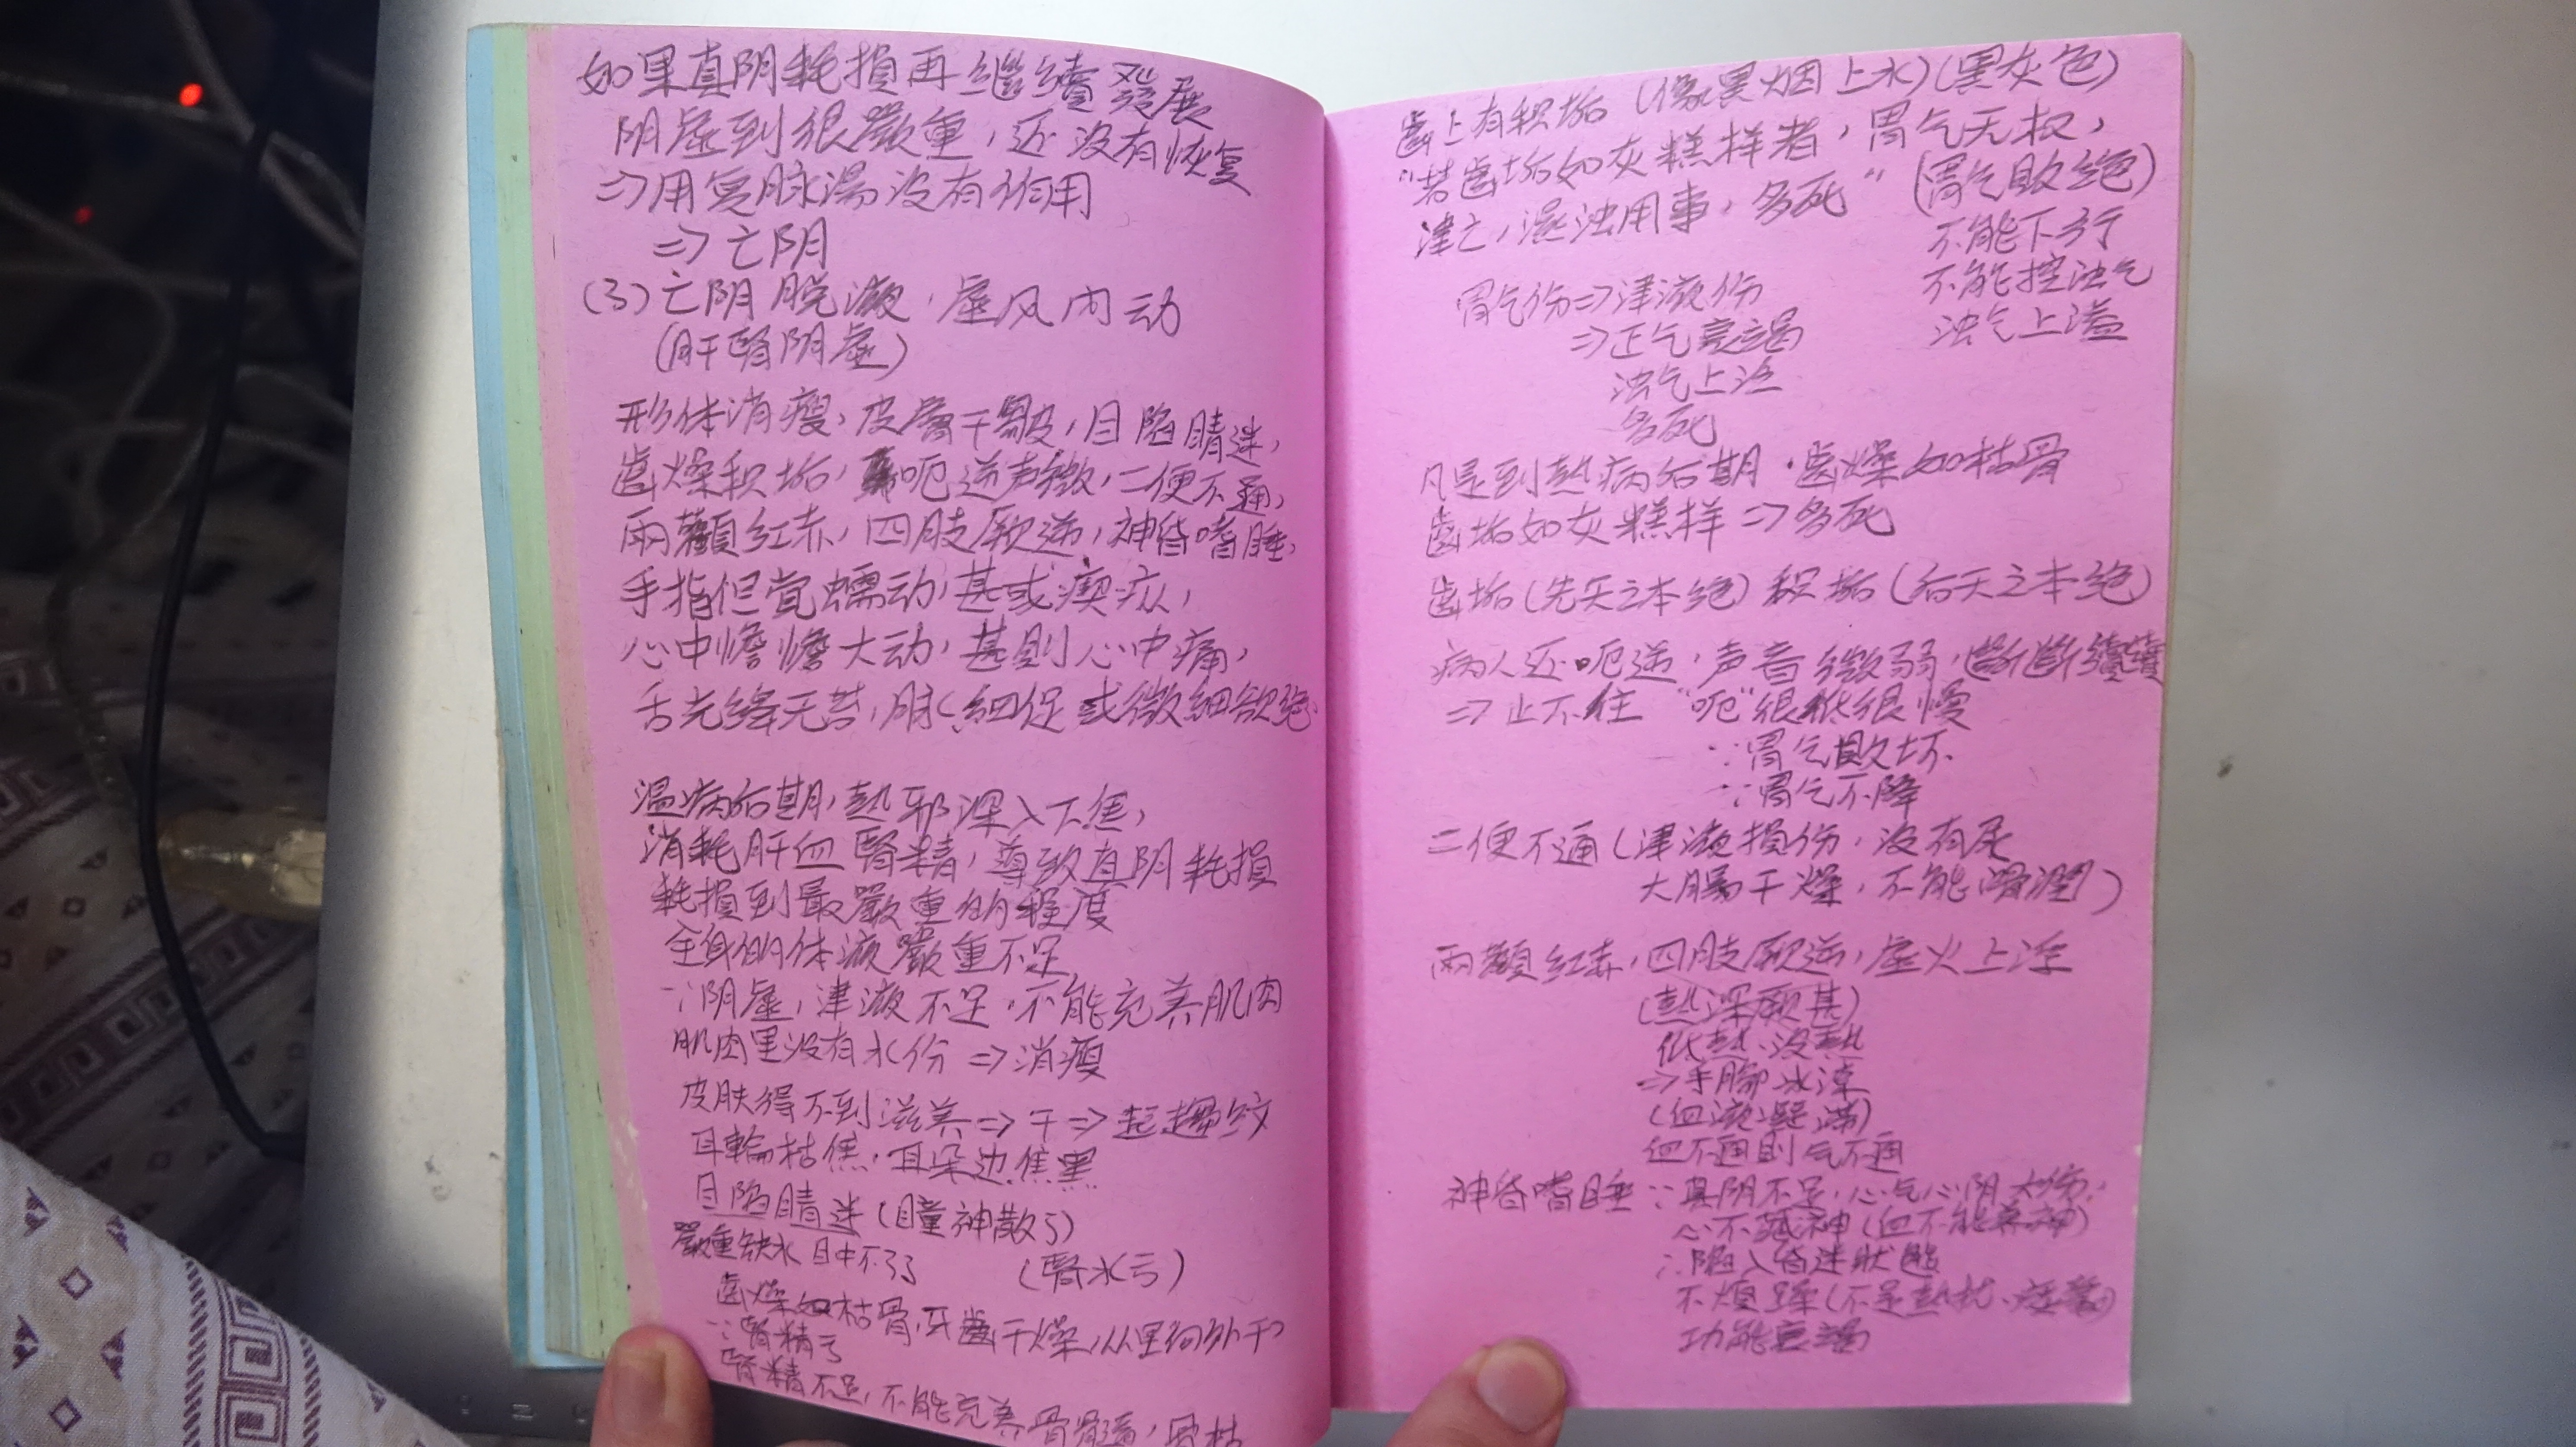 如果真阴耗損再继續發展
阴虚到很嚴重，还没有恢复
⇒用复脉湯没有作用
⇒亡阴
(3)亡阴脱液，虚风内动
(肝腎阴虚)
形体消瘦，皮膚干皺，目陷睛迷，
齒燥积垢，呃逆声微，二便不通，
兩顴红赤，四肢厥逆，神昏嗜睡，
手指但觉蠕动，甚或瘈疭，
心中憺憺大动，甚則心中痛，
舌光絳无苔，脉细促或微細欲絕
温病后期，热邪深入下焦，
消耗肝血腎精，導致真阴耗損
耗損到最嚴重的程度
全身的体液嚴重不足
∵阴虚，津液不足，不能充养肌肉
肌肉里没有水份⇒消瘦
皮肤得不到滋养⇒干⇒起皺纹
耳輪枯焦，耳朵边焦黑
目陷睛迷(瞳神散了)
嚴重缺水 目中不了了
(腎水亏)
齒燥如枯骨，牙齒干燥，从里向外干
∵腎精亏
腎精不足，不能充养骨髓，骨枯
齒上有积垢(像黑烟上水)(黑灰色)
"若齒垢如灰糕样者，胃气无权，
津亡，湿浊用事，多死"(胃气敗绝)
不能下行
不能控浊气
浊气上溢
胃气伤⇒津液伤
⇒正气衰竭
浊气上泛
多死
凡是到热病后期，齒燥如枯骨
齒垢如灰糕样⇒多死
齒垢(先天之本绝)积垢(后天之本绝)
病人还呃逆，声音微弱，断断續續
⇒止不住 "呃"很低很慢
∵胃气敗坏
∵胃气不降
二便不通(津液損伤，没有尿
大腸干燥，不能滑潤)
兩顴红赤，四肢厥逆，虚火上浮
(热深厥甚)
低热、没热
⇒手脚冰凉
(血液凝滞)
血不通則气不通
神昏嗜睡∵真阴不足，心气心阴大伤
心不藏神(血不能养神)
∴陷入昏迷狀態
不烦躁(不是热扰、痰蒙)
功能衰竭